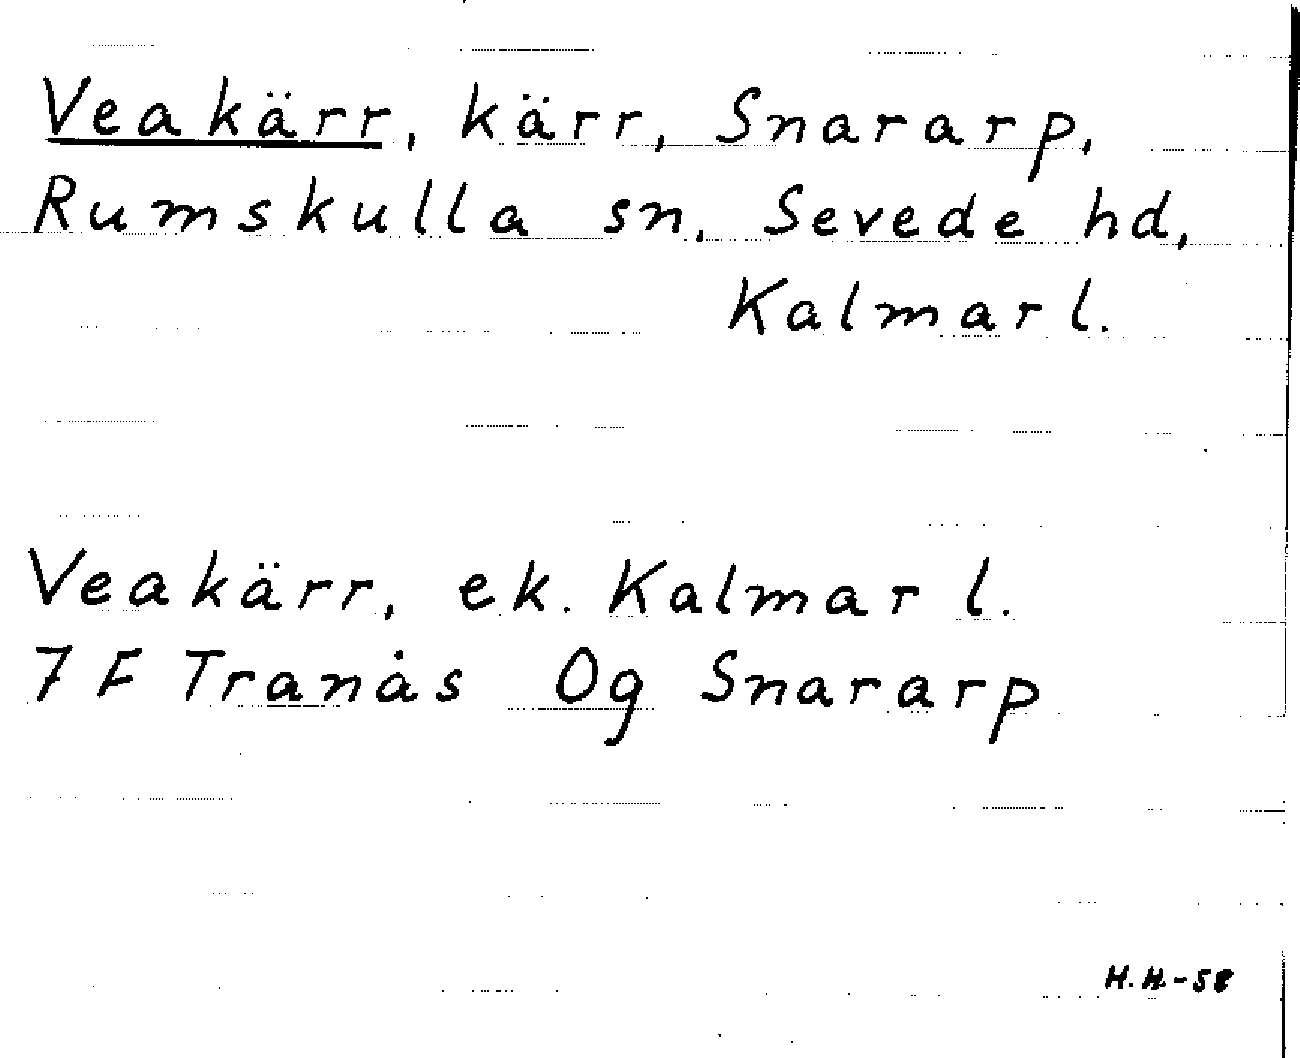 Veakärr, kärr, Snararp,
Rumskulla sn, Sevede hd,
Kalmar l.
Veakärr, ek. Kalmar l.
7 F Tranås Og Snararp
H.H.-58